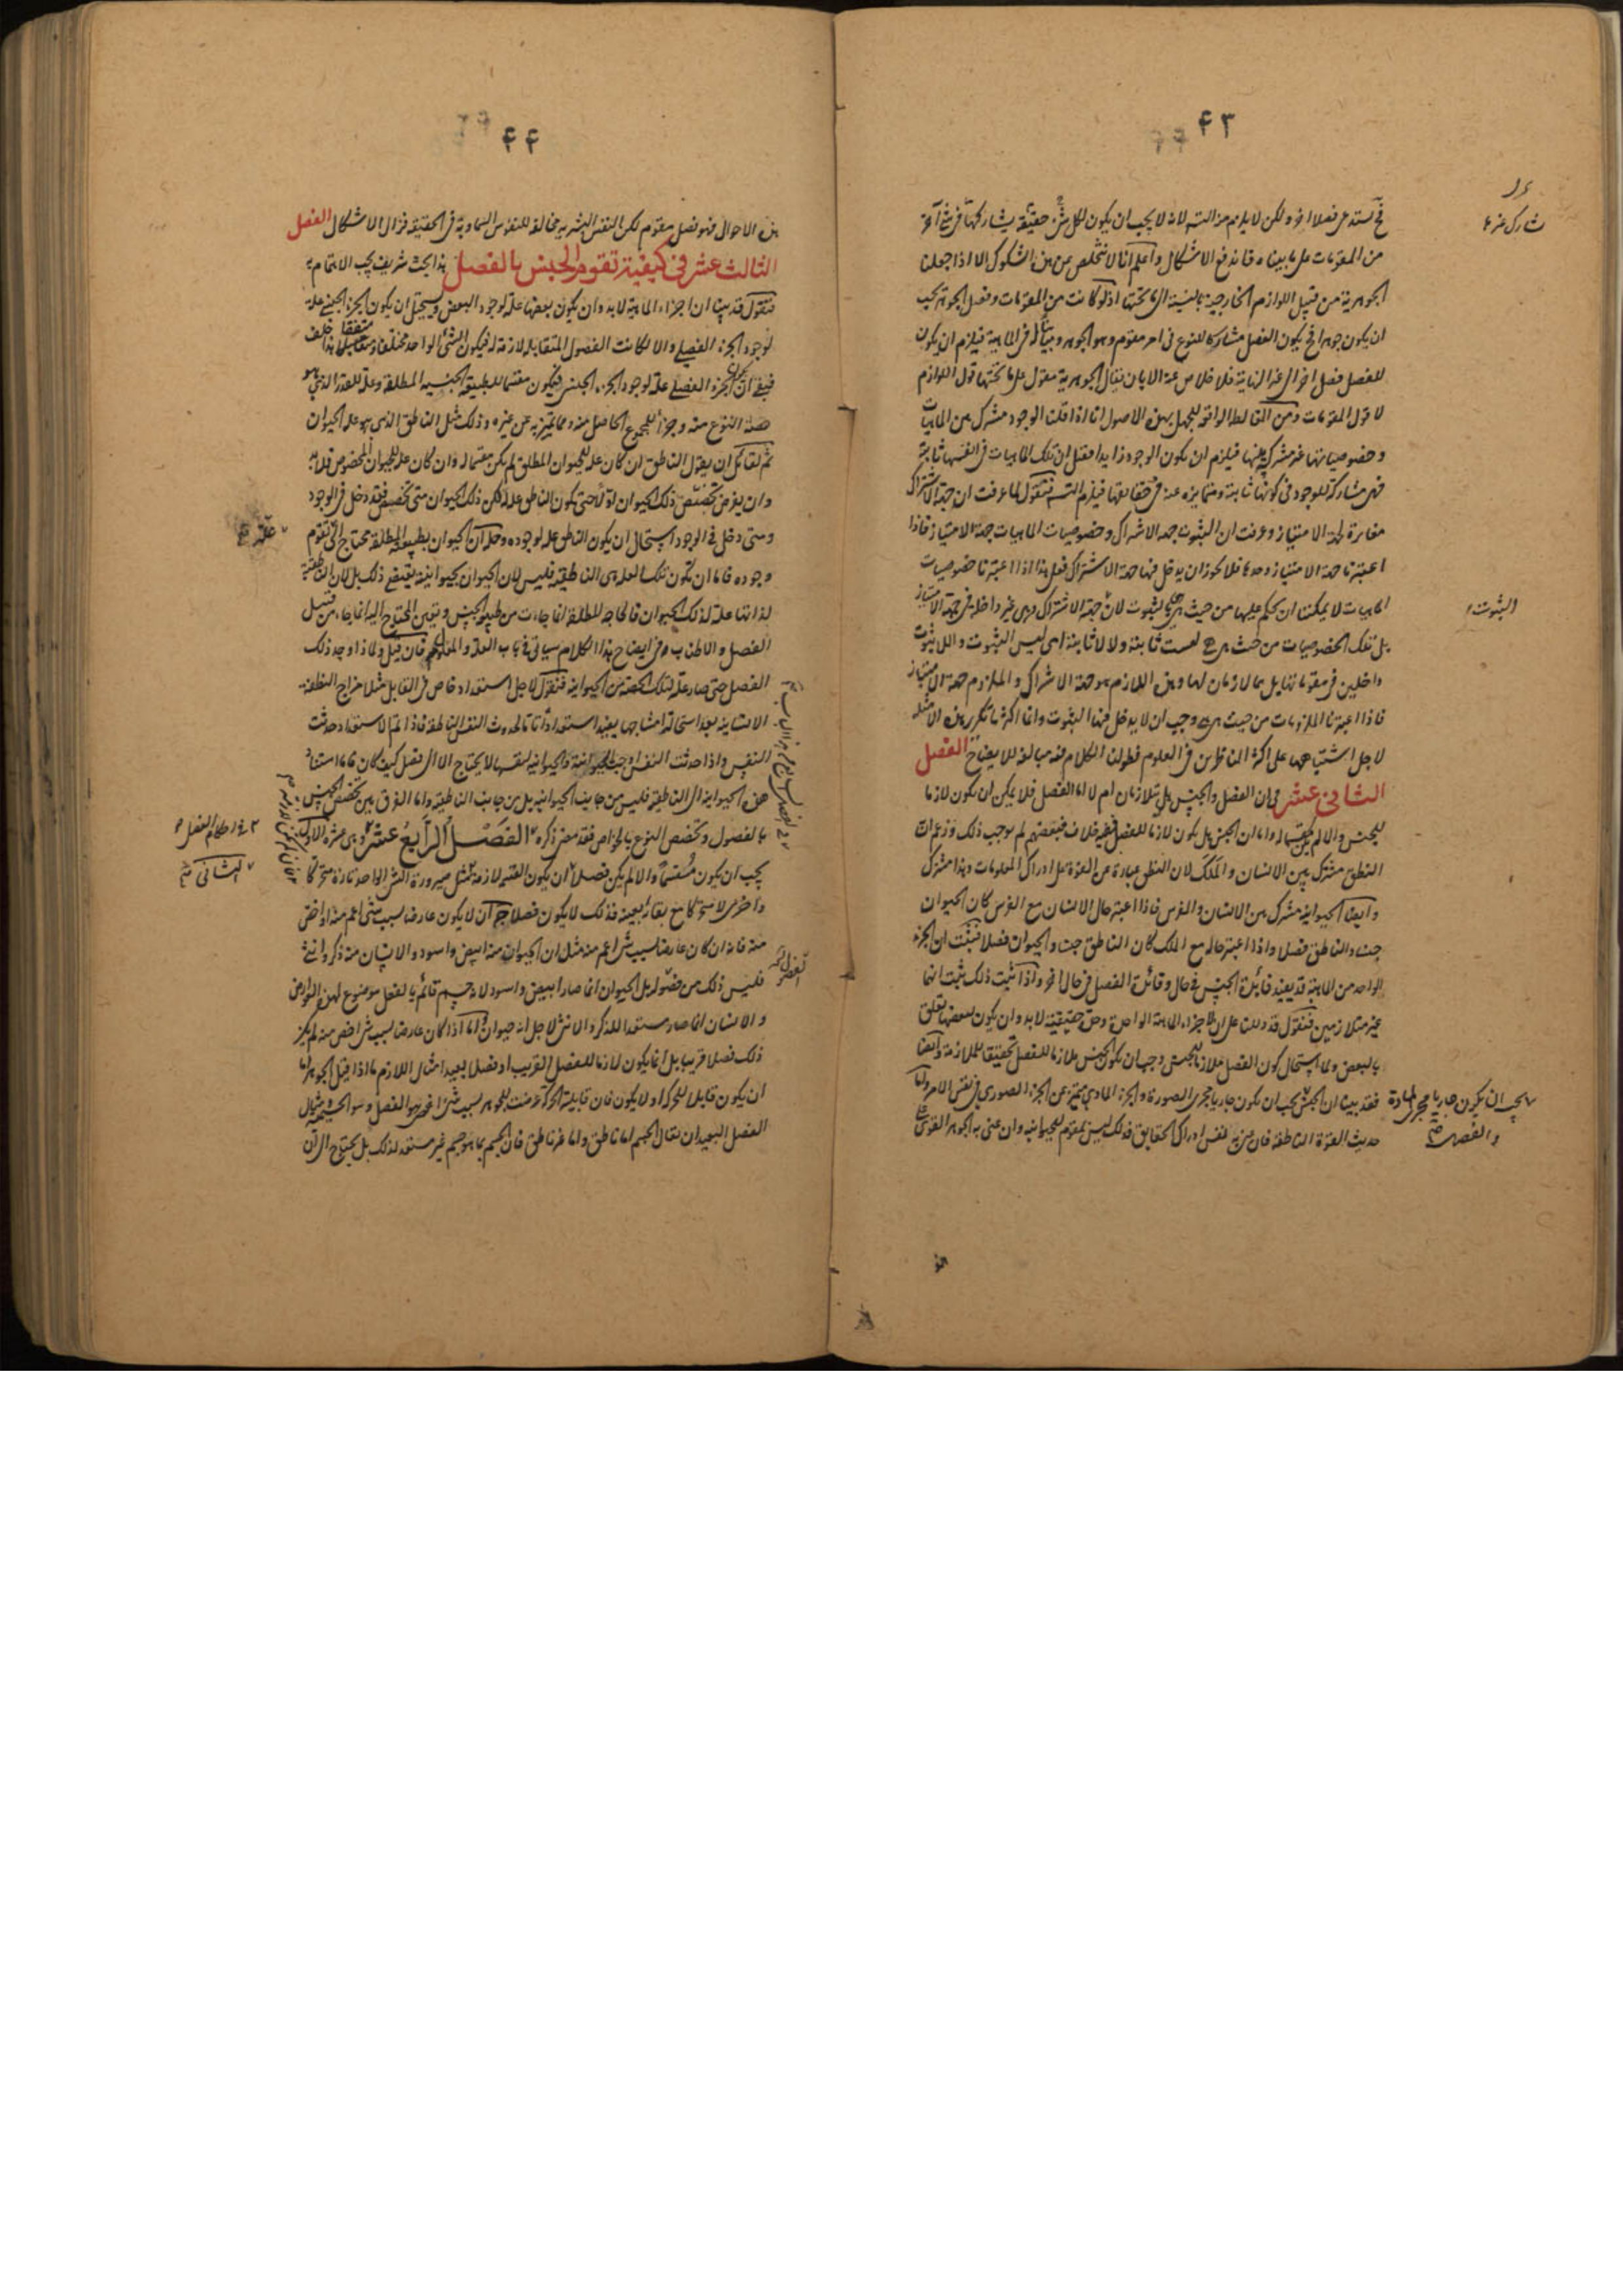 ۴۳
من المقومات على ما بيناه فاندفع الاشكال واعلم انا لا نتخلص عن هذه الشكوك الا اذا جعلنا
الجوهرية من قبيل اللوازم الخارجية بالنسبة الى ما تحتها اذ لو كانت من المقومات وفصل الجوهر يجب
ان يكون جوهرا فح يكون الفصل مشاركا للنوع فى امر مقوم وهو الجوهر فى الماهية فيلزم ان يكون
للفصل فصل اخر الى غير النهاية فلا خلاص عنه الا بان يقال الجوهرية مقول على ما تحتها قول اللوازم
لا قول المقومات ومن المغالط الواقعة للجهل بهذه الاصول انا اذا قلنا الوجود مشترك بين الماهيات
وخصوصياتها غير مشتركة بينها فيلزم ان يكون الوجود زايدا فقيل ان تلك الماهيات فى انفسها ثابتة
فهى مشاركة للوجود فى كونها ثابتة ومتمايزة عنه فى حقايقها فيلزم التسلسل فنقول لما عرفت ان جهة الاشتراك
مغايرة لجهة الامتياز وعرفت ان الثبوت جهة الاشتراك وخصوصيات الماهيات جهة الامتياز فاذا
اعتبرنا جهة الامتياز وحدها فلا يجوز ان يدخل فيها جهة الاشتراك فعلى هذا اذا اعتبرنا خصوصيات
الماهيات لا يمكننا ان نحكم عليها من حيث هى بالثبوت لان جهة الاشتراك هى غير داخلة فى جهة الامتياز
بل تلك الخصوصيات من حيث هى هى ليست ثابتة ولا لا ثابتة اى ليس الثبوت واللاثبوت
داخلين فى مفهوماتها بل هما لازمان لها وهذه اللازم هو جهة الاشتراك والملزوم جهة الامتياز
فاذا اعتبرنا الملزومات من حيث هى هى وجب ان لا يدخل فيها الثبوت وانما اكثرنا تكرير هذه الامثلة
لاجل اشتباهها على اكثر الناظرين فى العلوم فطولنا الكلام فيه مبالغة للايضاح الفصل
الثانى عشر فى ان الفصل والجنس هل يتلازمان ام لا اما الفصل فلا يمكن ان يكون لازما
للجنس والا لم يكن مقسما له واما ان الجنس هل يكون لازما للفصل ففيه خلاف فبعضهم لم يوجب ذلك وزعم ان
النطق مشترك بين الانسان والملك لان النطق عبارة عن القوة على ادراك المعلومات وهذا مشترك
وايضا الحيوانية مشترك بين الانسان والفرس فاذا اعتبر حال الانسان مع الفرس كان الحيوان
جنسا والناطق فصلا واذا اعتبر حاله مع الملك كان الناطق جنسا والحيوان فصلا فثبت ان الجزء
الواحد من الماهية قد يفيد فائدة الجنس فى حال وفائدة الفصل فى حال اخر واذا ثبت ذلك ثبت انهما
غير متلازمين فنقول قد دللنا على ان اجزاء الماهية الواحدة وحدة حقيقية لا بد وان يكون لبعضها تعلق
بالبعض ولما استحال كون الفصل ملازما للجنس وجب ان يكون الجنس ملازما للفصل تحقيقا للملازمة وايضا
فقد بينا ان الجنس يجب ان يكون جاريا مجرى الصورة والجزء المادى عن الجزء الصورى فى نفس الامر واما
حديث القوة الناطقة فان عنى به نفس ادراك الحقايق فذلك ليس بمقوم للحيوانية وان عنى به الجوهر القوى على
الثبوت
يجب ان يكون جاريا مجرى المادة
والفصل
۴۴
هذه الاحوال فهو فصل مقوم لكن النفس البشرية مخالفة للنفوس السماوية فى الحقيقة فزال الاشكال الفصل
الثالث عشر فى كيفية تقوم الجنس بالفصل هذا بحث شريف يجب الاهتمام به
فنقول قد بينا ان اجزاء الماهية لا بد وان يكون بعضها علة لوجود البعض ويستحيل ان يكون الجزء الجنسى علة
لوجود الجزء الفصلى والا لكانت الفصول المتقابلة لازمة له فيكون الشئ الواحد مختلفا متقابلا هذا خلف
فبقى ان يكون الجزء الفصلى علة لوجود الجزء الجنسى فيكون مقسما للطبيعة الجنسية المطلقة وعلة للقدر الذى هو
حصة النوع منه وجزءا للمجموع الحاصل منه ومما يتميز به عن غيره وذلك مثل الناطق الذى هو علة الحيوان
ثم لقائل ان يقول الناطق ان كان علة للحيوان المطلق لم يكن مقسما له وان كان علة للحيوان المخصوص فلا بد
وان يفرض تخصص ذلك الحيوان اولا حتى يكون الناطق علة له لكن ذلك الحيوان متى تخصص فقد دخل فى الوجود
ومتى دخل فى الوجود استحال ان يكون الناطق علة لوجوده وحله ان الحيوان بطبيعته المطلقة محتاج الى تقوم
وجوده فاما ان تكون تلك العلة هى الناطقية فليس لان الحيوان بحيوانيته يقتضى ذلك بل لان الناطقية
لذاتها علة لذلك الحيوان فالحاجة المطلقة انما جاءت من طبيعة الجنس وتعين المحتاج اليه انما جاء من قبل
الفصل والاطناب فى ايضاح هذا الكلام سياتى فى باب العلة والمعلول فان قيل ولماذا وجد ذلك
الفصل حتى صار علة لتلك الحصة من الحيوانية فنقول لاجل استعداد خاص فى القابل مثلا مزاج النطفة
الانسانية بعد استحالة امشاجها يفيد استعدادا تاما لحدوث النفس الناطقة فاذا تم الاستعداد حدثت
النفس واذا حدثت النفس اوجبت الحيوانية والحيوانية لنفسها لا يحتاج الا الى فصل كيف كان فاما استناد
هذه الحيوانية الى الناطقية فليس من جانب الحيوانية بل من جانب الناطقية واما الفرق بين تخصص الجنس
بالفصول وتخصص النوع بالخواص فقد مضى ذكره الفصل الرابع عشر
يجب ان يكون مقسما والا لم يكن فصلا ان يكون القسمة لازمة لمثل صيرورة الشئ الواحد تارة متحركا
واخرى لا متحركا مع بقائه بعينه فذلك لا يكون فصلا ان لا يكون عارضا بسبب شئ اعم منه او اخص
منه فانه ان كان عارضا بسبب شئ اعم منه مثل ان الحيوان منه ابيض واسود والانسان منه ذكر وانثى
فليس ذلك من فصوله بل الحيوان انما صار ابيض واسود لانه جسم قائم بالفعل موضوع لهذه العوارض
والانسان انما صار مستعدا للذكر والانثى لاجل انه حيوان واما اذا كان عارضا بسبب شئ اخص منه لم يكن
ذلك فصلا قريبا بل انما يكون لازما للفصل القريب او فصلا بعيدا مثال اللازم ما اذا قيل الجوهر اما
ان يكون قابلا للحركة او لا يكون فان قابلية الحركة عرضت للجوهر بسبب شئ اخص هو الفصل وهو الجسمية مثال
الفصل البعيد ان يقال الجسم اما ناطق واما غير ناطق فان الجسم بما هو جسم غير مستعد لذلك بل يحتاج الى ان
علة